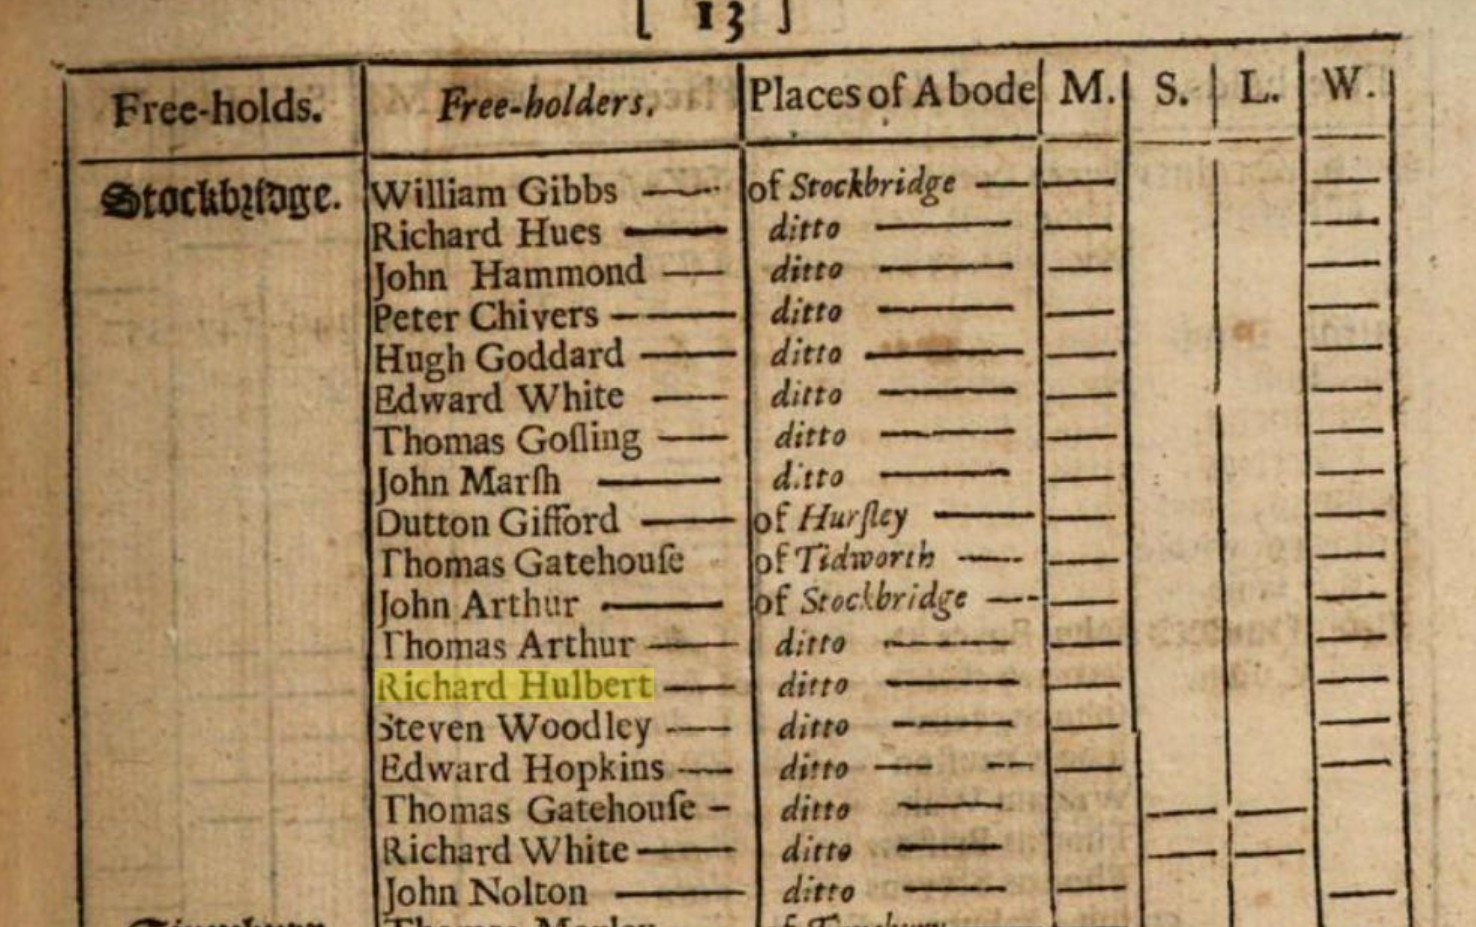 [ 13 ]
Free-holds. Free-holders. Places of Abode M. S. L. W.
Stockbridge. William Gibbs —— of Stockbridge — — —
Richard Hues —— ditto —— — —
John Hammond —— ditto —— — —
Peter Chivers —— ditto —— — —
Hugh Goddard —— ditto —— — —
Edward White —— ditto —— — —
Thomas Goſling —— ditto —— — —
John Marſh —— ditto —— — —
Dutton Gifford —— of Hurſley —— — —
Thomas Gatehouſe of Tidworth —— — —
John Arthur —— of Stockbridge —— — —
Thomas Arthur —— ditto —— — —
Richard Hulbert —— ditto —— — —
Steven Woodley —— ditto —— — —
Edward Hopkins —— ditto —— — —
Thomas Gatehouſe — ditto —— — —
Richard White —— ditto —— — —
John Nolton —— ditto —— — —